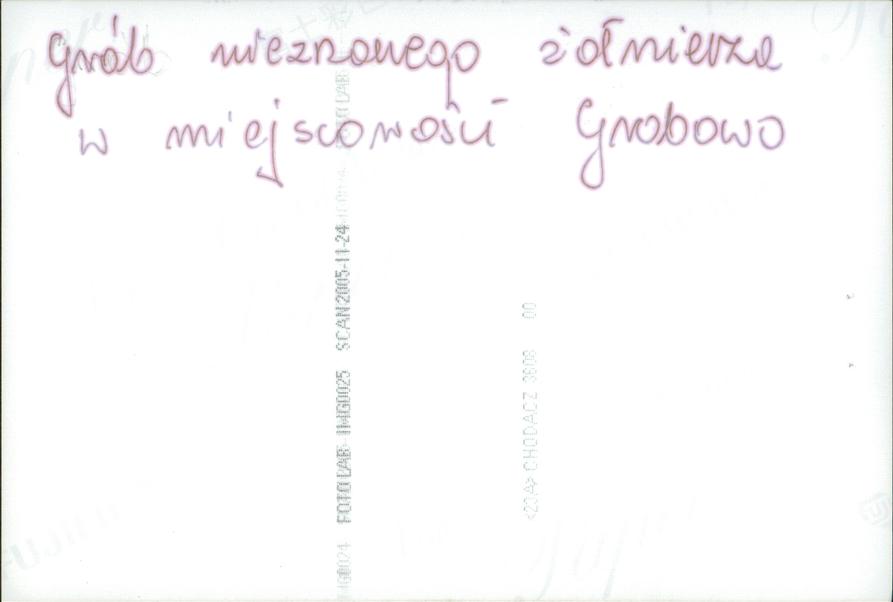 Grób nieznanego żołnierza
w miejscowości Grabowo
FOTO LAB IMG0025 SCAN 2005-11-24
<20A> CHODACZ 3608 00
FUJI